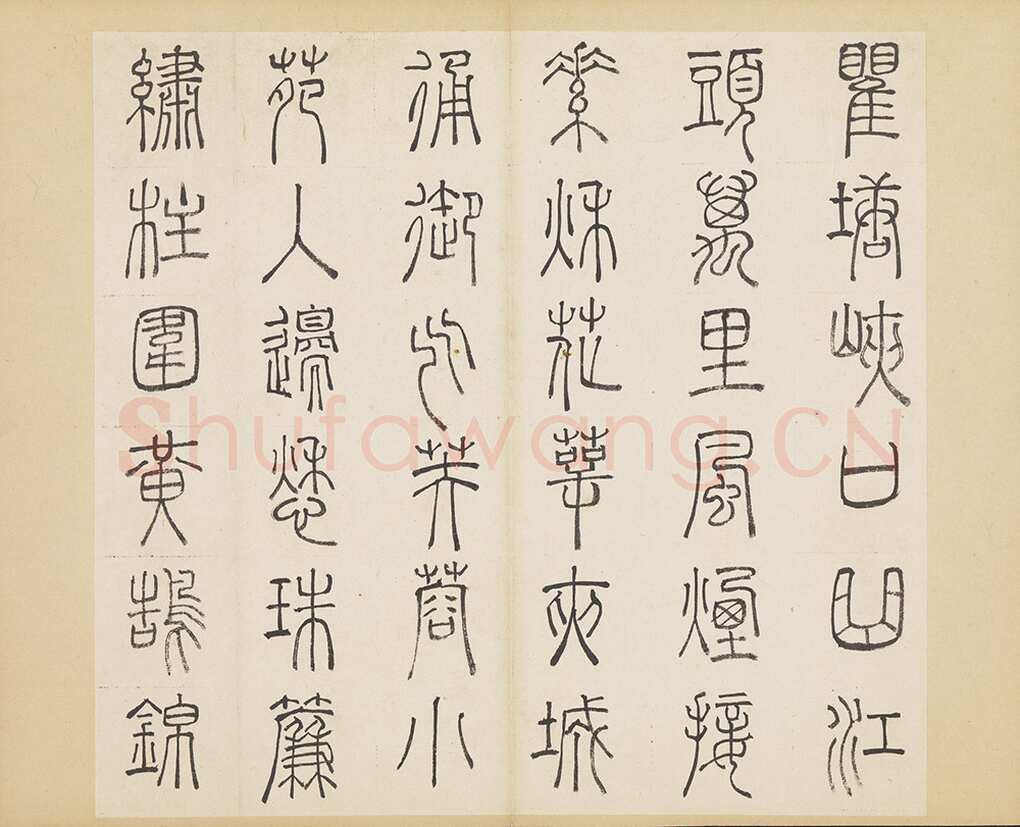 瞿塘峽口曲江
頭萬里風煙接
素秋花萼夾城
通御气芙蓉小
苑入邊愁珠簾
繡柱圍黃鵠錦
Shufawang.CN